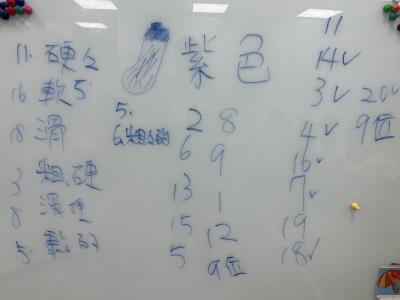 11. 硬々
16 軟5
18 滑
3 粗硬
8 滑硬
5. 軟的
紫色
5.
6. 粗々的
2 8
6 9
13 1
15 12
5 9位
11
14✓
3✓ 20✓
4✓ 9位
16✓
7✓
19
18✓